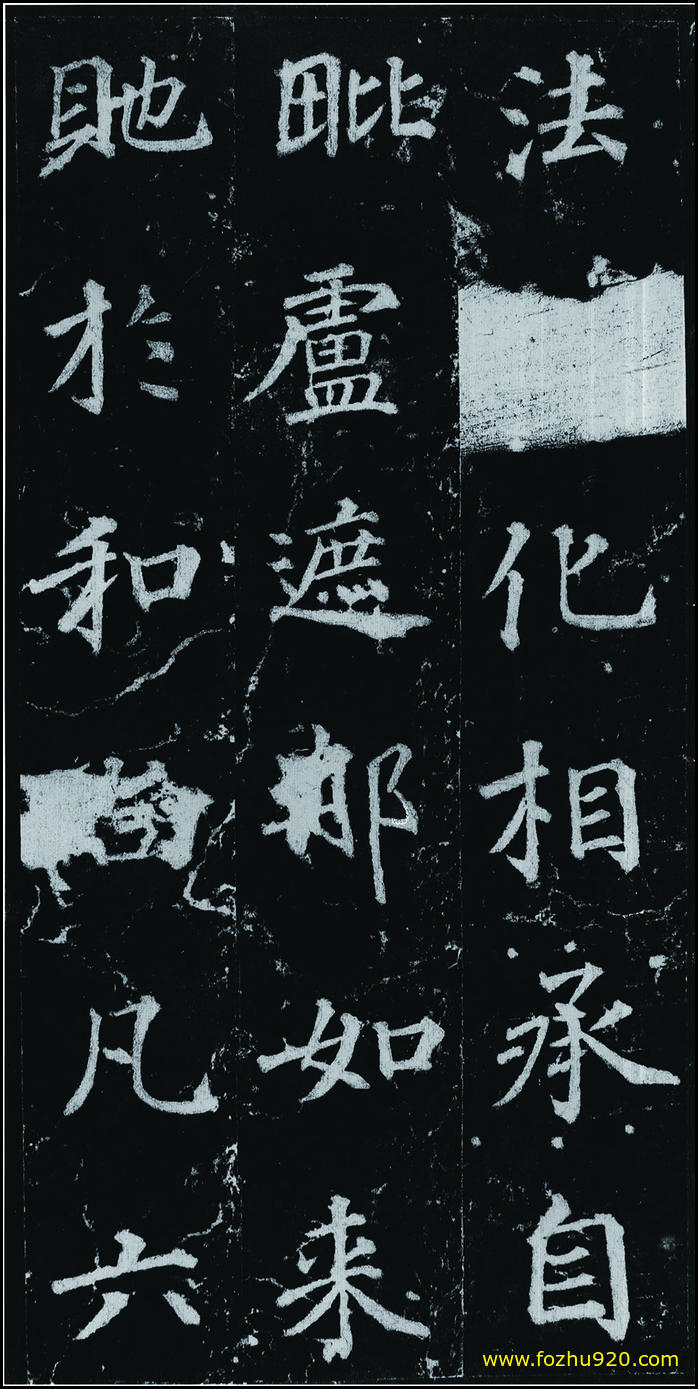 法化相承自
毗盧遮那如来
貤於和凡六
www.fozhu920.com